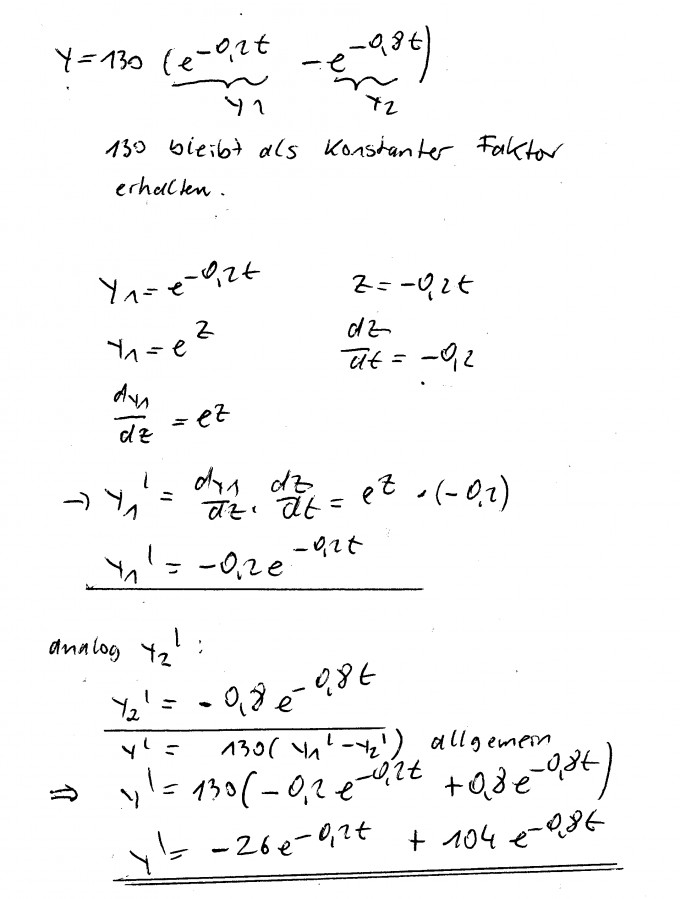 y = 130 (e^-0,2t - e^-0,8t)
y1 y2
130 bleibt als konstanter Faktor
erhalten.
y1 = e^-0,2t z = -0,2t
y1 = e^z dz/dt = -0,2
dy1/dz = e^z
→ y1' = dy1/dz · dz/dt = e^z · (-0,2)
y1' = -0,2e^-0,2t
analog y2' :
y2' = -0,8e^-0,8t
y' = 130(y1' - y2') allgemein
⇒ y' = 130(-0,2e^-0,2t + 0,8e^-0,8t)
y' = -26e^-0,2t + 104e^-0,8t